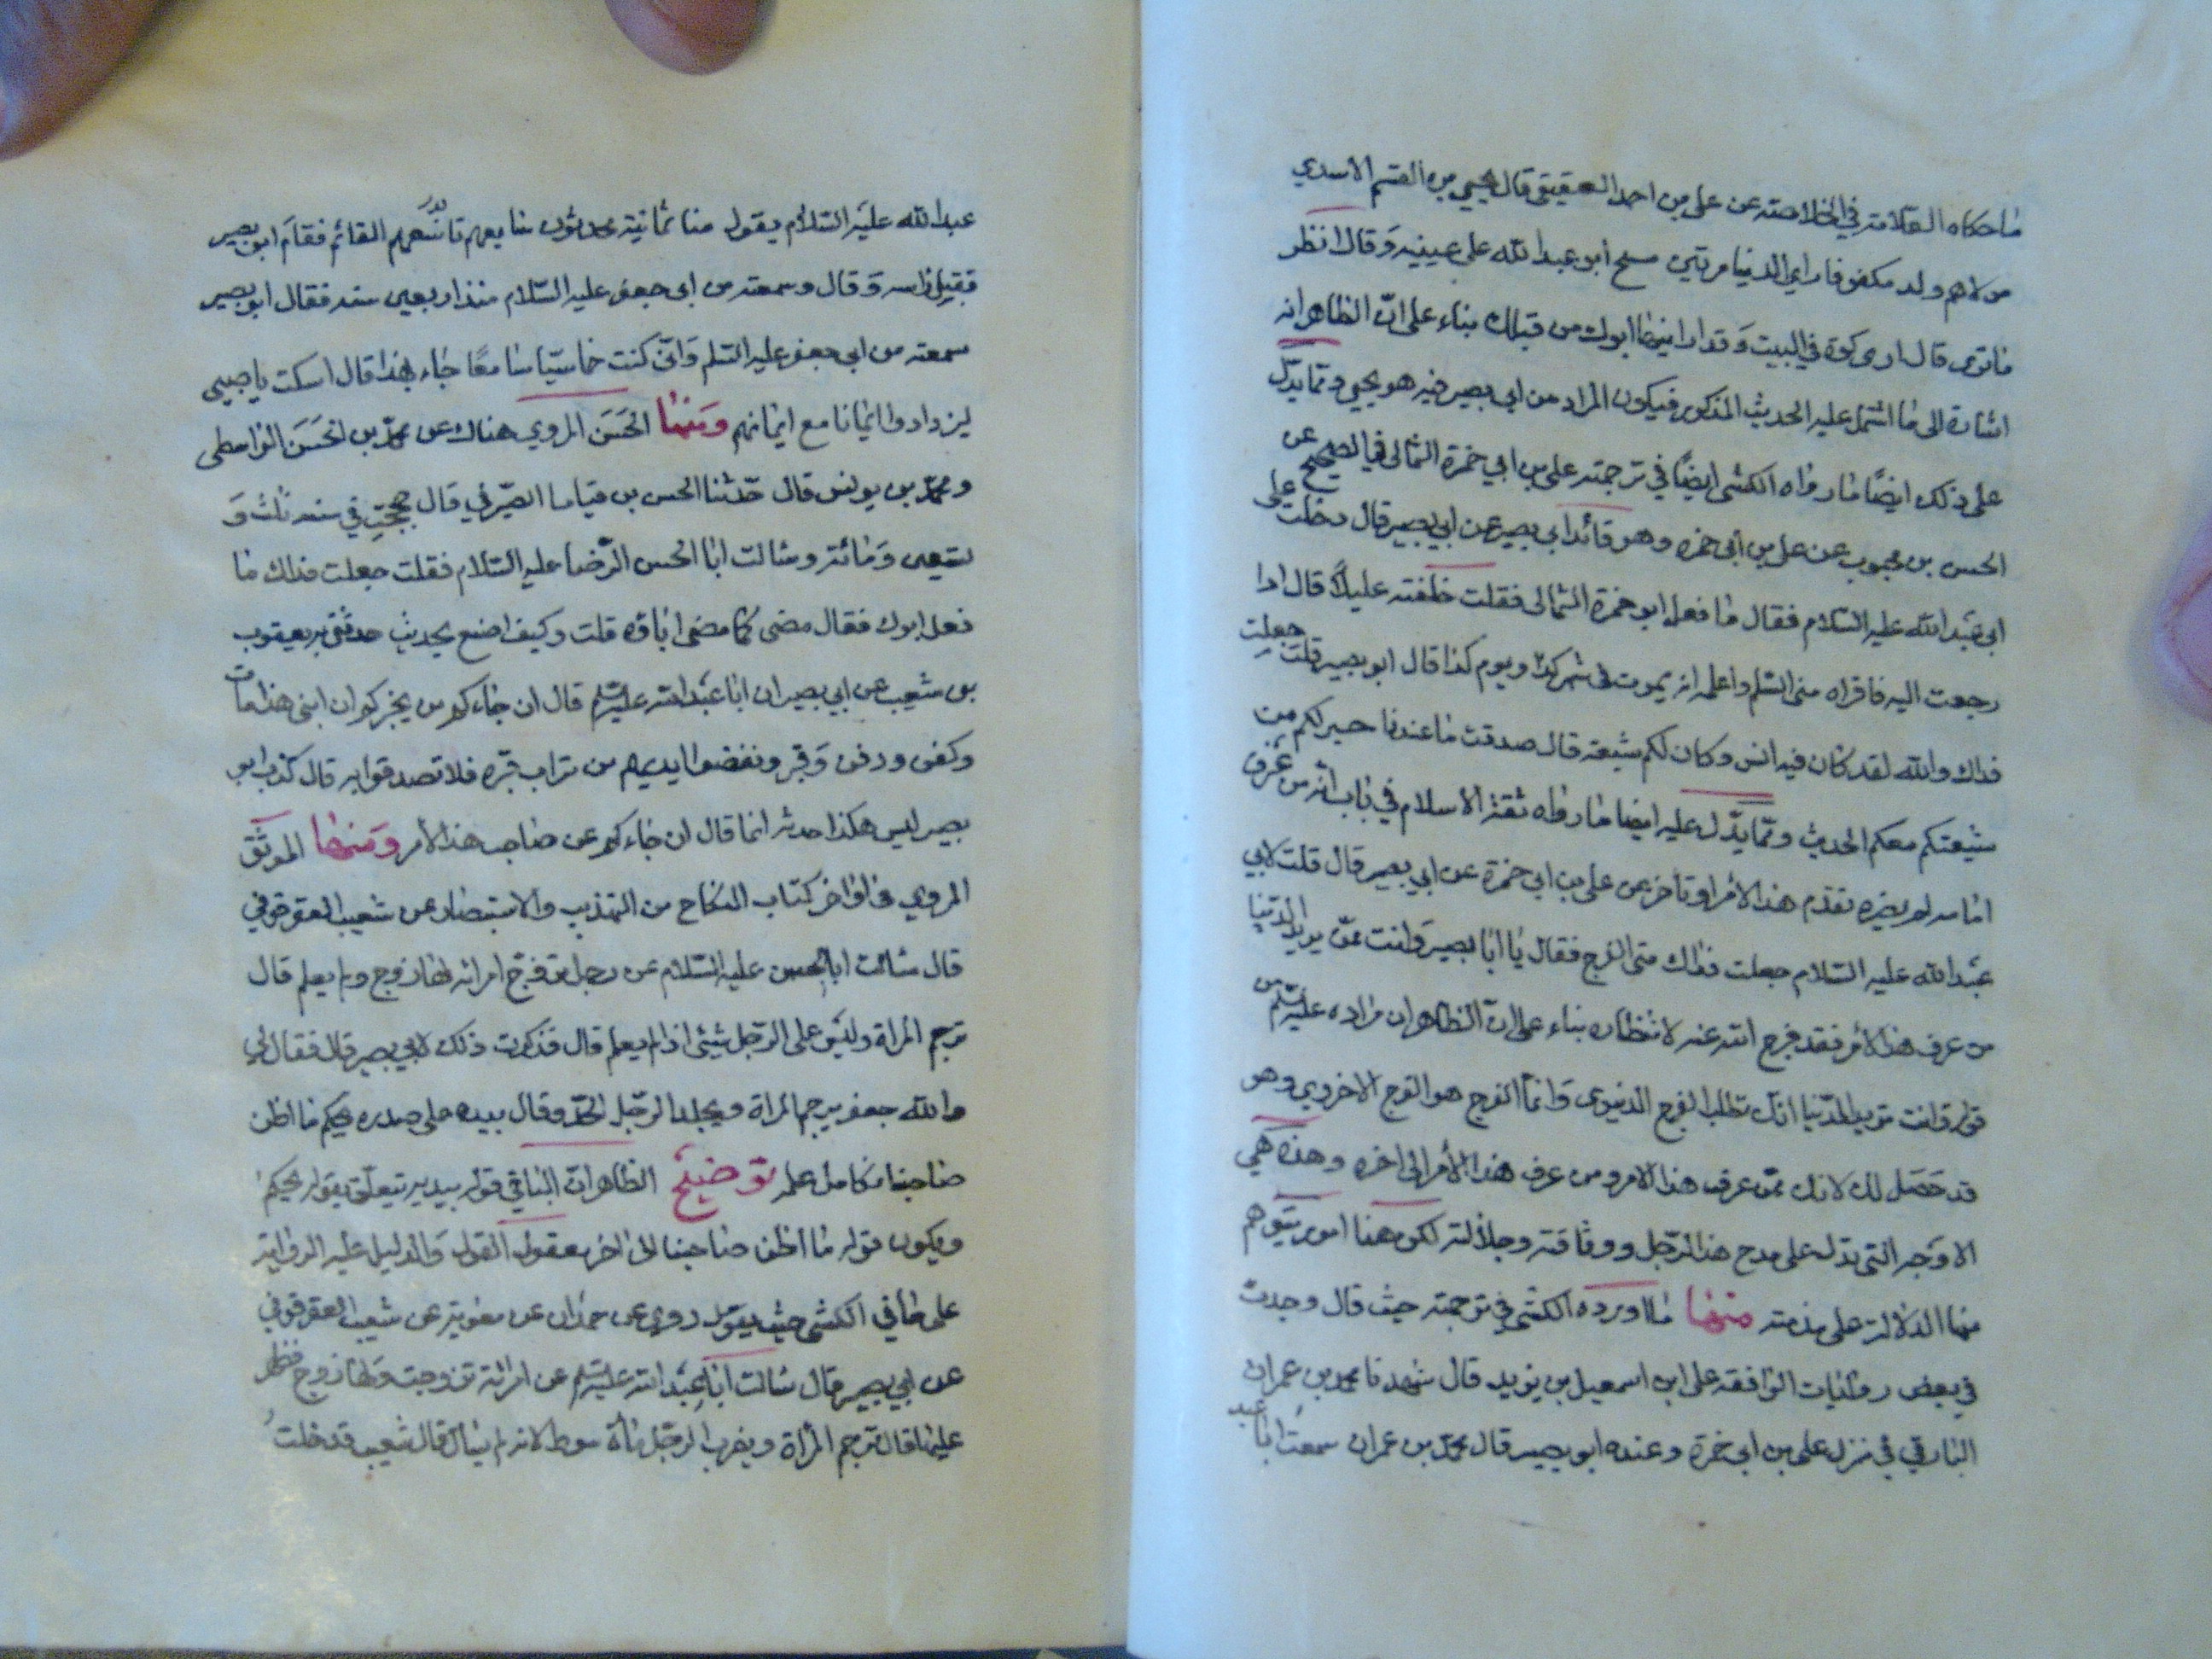 ما حكاه العلامة في الخلاصة عن علي بن احمد العقيقي قال يحيى بن القسم الاسدي
مولاهم ولد مكفوفا راي الدنيا مرتين مسح ابو عبد الله على عينيه وقال انظر
ما ترى قال ارى كوة في البيت وقد ارانيها ابوك من قبلك بناء على ان الظاهر انه
اشارة الى ما اشتمل عليه الحديث المذكور فيكون المراد من ابي بصير فيه هو يحيى ومما يدل
على ذلك ايضًا ما رواه الكشي ايضًا في ترجمته علي بن ابي حمزة الثمالي في الصحيح عن
الحسن بن محبوب عن علي بن ابي حمزه وهو قائد ابي بصير عن ابي بصير قال دخلت على
ابي عبد الله عليه السلام فقال ما فعل ابو حمزة الثمالي فقلت خلفته عليلًا قال اذا
رجعت اليه فاقراه مني السلم واعلمه انه يموت في شهر كذا ويوم كذا قال ابو بصير قلت جعلت
فداك والله لقد كان فيه انس وكان لكم شيعة قال صدقت ما عندنا خير لكم من
شيعتكم معكم الحديث ومما يدل عليه ايضا ما رواه ثقة الاسلام في باب انه من عرف
امامه لم يضره تقدم هذا الأمر او تأخر عن علي بن ابي حمزة عن ابي بصير قال قلت لابي
عبد الله عليه السلام جعلت فداك متى الفرج فقال يا ابا بصير وانت ممن يريد الدنيا
من عرف هذا الأمر فقد فرج الله عنه لانتظاره بناء على ان الظاهر ان مراده عليه السلم من
قوله وانت تريد الدنيا انك تطلب الفرج الدنيوى وانما الفرج هو الفرج الاخروي وهو
قد حصل لك لانك ممن عرف هذا الامر ومن عرف هذا الأمر الى اخره وهذه هي
الاوجه التي تدل على مدح هذا الرجل ووثاقته وجلالته لكن ههنا امور يتوهم
منها الدلالة على مذمته منها ما اورده الكشي في ترجمته حيث قال وجدت
في بعض روايات الواقفة علي بن اسمعيل بن يزيد قال شهدنا محمد بن عمران
البارقي في منزل علي بن ابي حمزة وعنده ابو بصير قال محمد بن عمران سمعت ابا عبد
عبد الله عليه السلام يقول منا ثمانية محدثون سابعهم تاسعهم القائم فقام ابو بصير
فقبل راسه وقال وسمعته من ابي جعفر عليه السلام منذ اربعين سنه فقال ابو بصير
سمعته من ابي جعفر عليه السلم واني كنت خماسيا سامعًا جاء بهذا قال اسكت يا صبي
ليزدادوا ايمانا مع ايمانهم ومنها الحسن المروي هناك عن محمد بن الحسن الواسطي
ومحمد بن يونس قال حدثنا الحسن بن قياما الصيرفي قال حججت في سنه ثلث و
تسعين ومائة وسالت ابا الحسن الرضا عليه السلام فقلت جعلت فداك ما
فعل ابوك فقال مضى كما مضى اباؤه قلت وكيف اصنع بحديث حدثني به يعقوب
بن شعيب عن ابي بصير ان ابا عبد الله عليه السلم قال ان جاءكم من يخبركم ان ابني هذا مات
وكفن ودفن وقبر ونفضوا ايديهم من تراب قبره فلا تصدقوا به قال كذب ابو
بصير ليس هكذا حدثه انما قال ان جاءكم عن صاحب هذا الأمر ومنها الموثق
المروي في اواخر كتاب النكاح من التهذيب والاستبصار عن شعيب العقرقوفي
قال سالت ابا الحسن عليه السلام عن رجل تزوج امراة لها زوج ولم يعلم قال
ترجم المراة وليس على الرجل شيئ اذا لم يعلم قال فذكرت ذلك لابي بصير قال فقال لي
والله جعفر يرجم المراة ويجلد الرجل الحد وقال بيده على صدره يحكم ما اظن
صاحبنا تكامل علمه توضيح الظاهر ان الباقي قوله بيديه يتعلق بقوله يحكم
ويكون قوله ما اظن صاحبنا الى اخره مقول القول والدليل عليه الرواية
على ما في الكشي حيث يقول روي عن حمدان عن معوية عن شعيب العقرقوفي
عن ابي بصير قال سالت ابا عبد الله عليه السلم عن امرائة تزوجت ولها زوج فظهر
عليها قال ترجم المرأة ويضرب الرجل مأة سوط لانه لم يسأل قال شعيب فدخلت